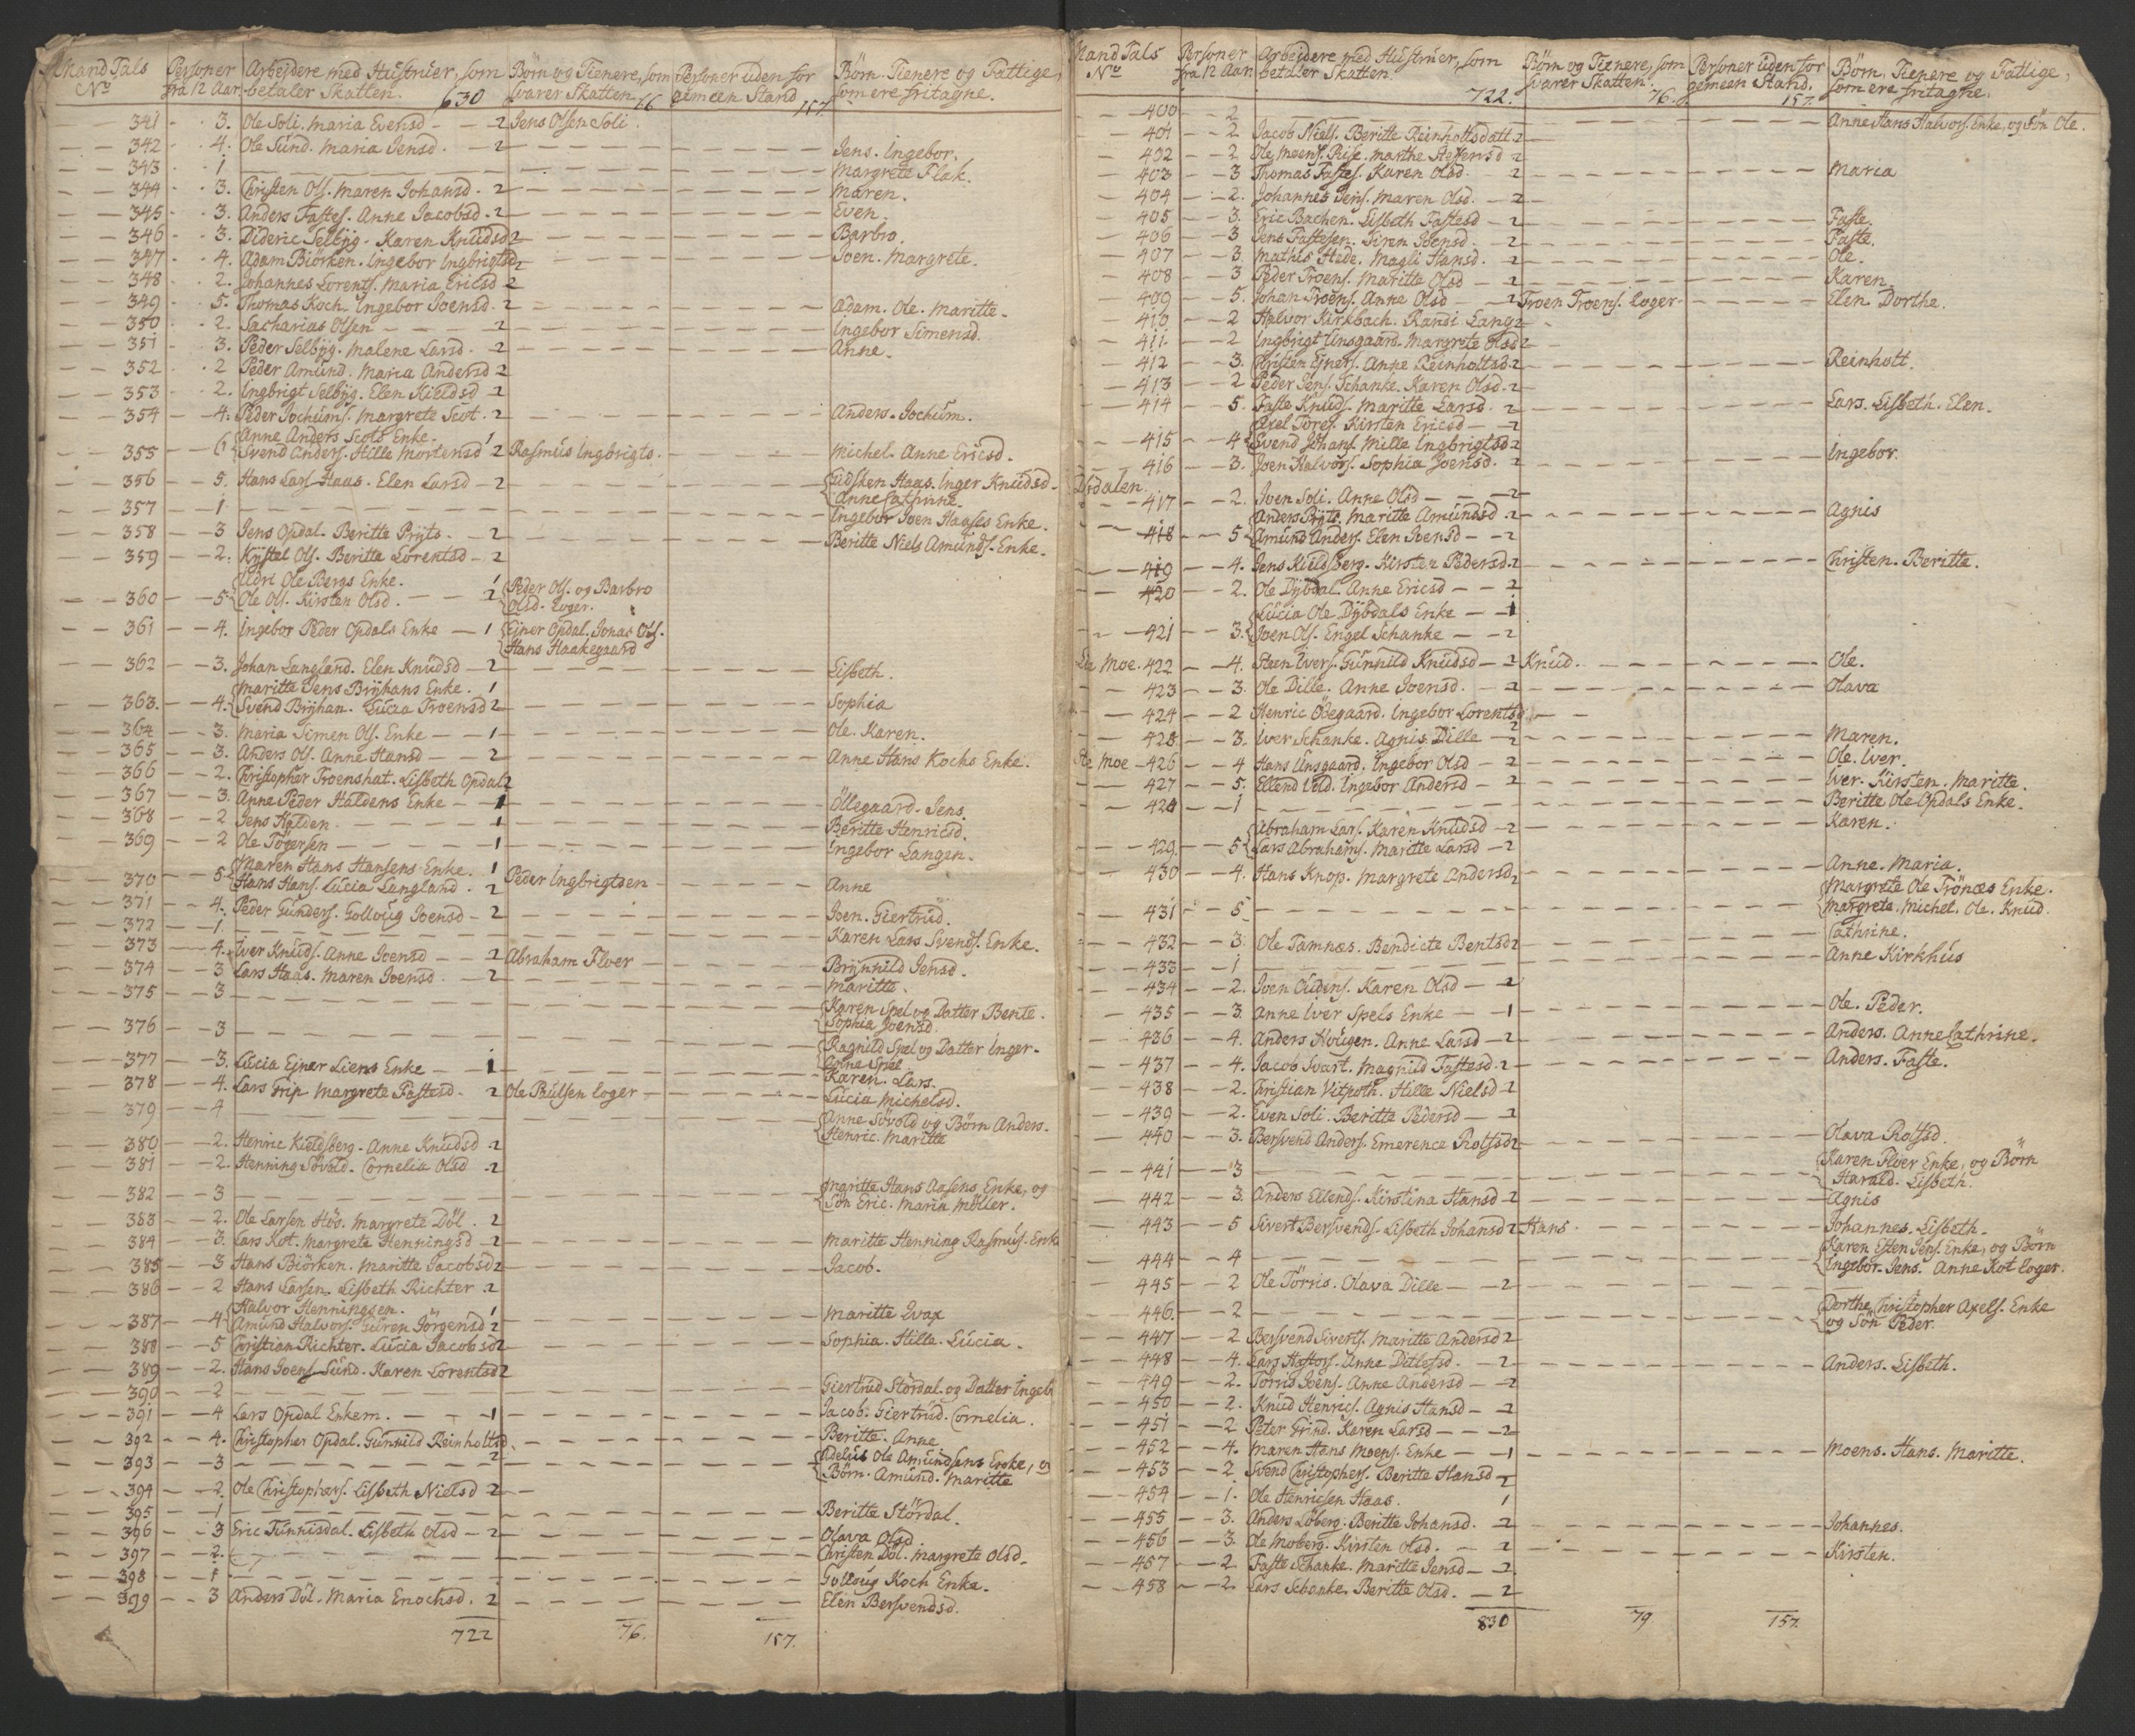 Mand Tals No Personer fra 12 Aar Arbejdere med Hustruer, som betaler Skatten. 630 Børn og Tienere, som svarer Skatten 66 Personer uden for gemeen Stand 157 Børn. Tienere og Fattige, som ere fritagne.
341 3. Ole Soli. Maria Evensd 2 Jens Olsen Soli.
342 4. Ole Sund. Maria Jensd. 2 Jens. Ingebor.
343 1 Margrete Flak.
344 3. Christen Ols. Maren Johansd. 2 Maren.
345 3. Anders Fastes. Anne Jacobsd. 2 Even.
346 3. Dideric Selbyg. Karen Knudsd 2 Barbro.
347 4. Adam Biörken. Ingebor Ingbrigtsd 2 Joen. Margrete.
348 2. Johannes Lorents. Maria Ericsd 2
349 5. Thomas Koch. Ingebor Joensd. 2 Adam. Ole. Maritte.
350 2. Sacharias Olsen 2 Ingebor Simensd.
351 3. Peder Selbyg. Malene Larsd. 2 Anne.
352 2 Peder Amund. Maria Andersd 2
353 2. Ingbrigt Selbyg. Elen Kieldsd 2
354 4. Peder Jochums. Margrete Scot. 2 Anders. Jochum.
Anne Anders Scots Enke. 1
355 6 Svend Anders. Hille Mortensd 2 Rasmus Ingbrigts. Michel. Anne Ericsd.
356 5. Hans Lars. Haas. Elen Larsd 2 Udsken Haas. Inger Knudsd.
Anne Cathrine.
357 1 Ingebor Joen Haases Enke.
358 3 Jens Opdal. Beritte Pryts. 2 Beritte Niels Amunds. Enke.
359 2. Kystel Ols. Beritte Lorentsd 2
Udri Ole Bergs Enke. 1
360 5 Ole Ols. Kirsten Olsd. 2 Peder Ols. og Barbro
Olsd. Loger.
361 4. Ingebor Peder Opdals Enke 1 Ejner Opdal. Jonas Ols.
Hans Haakegaard
362 3. Johan Langland. Elen Knudsd 2 Lisbeth.
Maritte Jens Bryhans Enke. 1
363. 4. Svend Bryhan. Lucia Troensd 2 Sophia
364 3. Maria Simen Ols. Enke 1 Ole. Karen.
365 3. Anders Ols. Anne Hansd 2 Anne Hans Kochs Enke.
366 2. Christopher Troenshat. Lisbeth Opdal 2
367 3. Anne Peder Haldens Enke 1 Öllegaard. Jens.
368 2 Jens Halden. 1 Beritte Henricsd.
369 2 Ole Tögersen 1 Ingebor Langen.
Maren Hans Hansens Enke. 1
370 5 Hans Hans. Lucia Langland. 2 Peder Ingbrigtsen Anne
371 4. Peder Gunders. Golloug Joensd 2 Joen. Giertrud.
372 1. Karen Lars Svends. Enke.
373 4. Iver Knuds. Anne Joensd 2 Abraham Floer Brynnild Jensd.
374 3 Lars Haas. Maren Joensd. 2 Maritte.
375 3 Karen Spel og Datter Bente.
Sophia Joensd.
376 3 Ragnild Spel og Datter Inger.
Anne Spel.
377 3. Lucia Ejner Liens Enke 1 Karen. Lars.
378 4. Lars Trip Margrete Fastesd. 2 Ole Paulsen loger Lucia Michelsd.
379 4 Anne Sövold og Börn Anders.
Henric. Maritte
380 2. Henric Kieldsberg. Anne Knudsd 2
381 2. Henning Sövold. Cornelia Olsd 2
382 3 Maritte Hans Aasens Enke, og
Sön Eric. Maria Möller.
383 2. Ole Larsen Hös. Margrete Döl. 2
384 3. Lars Kot. Margrete Henningsd 2 Maritte Henning Rasmus. Enke
385 3 Hans Biörken. Maritte Jacobsd 2 Jacob.
386 2 Hans Larsen. Lisbeth Richter 2
Halvor Henningsen. 1
387 4 Amund Halvors. Giüren Jörgensd 2 Maritte Ivax
388 5 Christian Richter. Lucia Jacobsd 2 Sophia. Hille. Lucia.
389 2. Hans Joens. Sund. Karen Lorentsd 2
390 2 Giertrud Stördal. og Datter Ingeb
391 4 Lars Opdal Enkem. 1 Jacob. Giertrud. Cornelia.
392 4. Christopher Opdal. Gunnild Reinholtsd 2 Beritte. Anne
393 3 Adelus Ole Amundsens Enke, og
Börn. Amund. Maritte
394 2 Ole Christophers. Lisbeth Nielsd 2
395 1 Beritte Stördal.
396 3 Eric Tunnisdal. Lisbeth Olsd 2 Olava Olsd
397 2. Christen Döl. Margrete Olsd.
398 1 Golloug Koch Enke.
399 3 Anders Döl. Maria Enochsd. 2 Elen Bersvendsd.
722 76. 157.
Mand Tals No Personer fra 12 Aar Arbejdere med Hustruer, som betaler Skatten 722. Börn og Tienere, som svarer Skatten. 76. Personer uden for gemeen Stand. 157. Börn, Tienere og Fattige, som ere fritagne.
400 2 Anne Hans Halvors. Enke, og Sön Ole.
401 2 Jacob Niels. Beritte Reinholtsdatt 2
402 2 Ole Moens. Rise. Marthe Steffensd 2
403 3 Thomas Fastes. Karen Olsd. 2 Maria
404 2. Johannes Jens. Maren Olsd. 2
405 3. Eric Bachen. Lisbeth Fastesd 2 Faste.
406 3 Jens Fastesen. Siren Joensd. 2 Faste.
407 3 Mathis Hede. Magli Hansd. 2 Ole.
408 3 Peder Troens. Maritte Olsd 2 Karen.
409 5. Johan Troens. Anne Olsd 2 Troen Troens. Loger Elen Dorthe.
410 2 Halvor Kirkbach. Randi Lang 2
411 2 Ingbrigt Unsgaard. Margrete Olsd 2
412 3. Christen Ejners. Anne Reinholtsd 2 Reinholt.
413 2 Peder Jens. Schanke. Karen Olsd. 2
414 5. Faste Knuds. Maritte Larsd. 2 Lars. Lisbeth. Elen.
Axel Tores. Kirsten Ericsd 2
415 4 Svend Johans. Mille Ingbrigtsd 2
416 3. Joen Halvors. Sophia Joensd. 2 Ingebor.
Dysdalen.
417 2. Iven Soli. Anne Olsd 2
Anders Pryts. Maritte Amundsd. 2 Agnis
418 5 Amund Anders. Elen Joensd 2
419 4. Jens Kieldsberg. Kirsten Pedersd. 2 Christen. Beritte.
420 2. Ole Dybdal. Anne Ericsd 2
Lucia Ole Dybdals Enke 1
421 3. Joen Ols. Engel Schanke 2
Lie Moe. 422 4. Steen Ivers. Gunnild Knudsd 2 Knud. Ole.
423 3. Ole Dille. Anne Joensd. 2 Olava
424 2 Henric Ödegaard. Ingebor Lorentsd 2
425 3. Iver Schanke. Agnis Dille 2 Maren.
Ste Moe 426 4 Hans Unsgaard. Ingebor Olsd 2 Ole. Iver.
427 5. Ellend Uld. Ingebor Andersd 2 Iver. Kirsten. Maritte.
428 1 Beritte Ole Opdals Enke.
Abraham Lars. Karen Knudsd 2 Karen.
429 5 Lars Abrahams. Maritte Larsd 2
430 4. Hans Knop. Margrete Andersd 2 Anne. Maria.
431 5 Margrete Ole Trönæs Enke.
Margrete. Michel. Ole. Knud.
432 3. Ole Tamnæs. Bendicte Bentsd 2 Cathrine.
433 1 Anne Kirkhus
434 2. Iven Oudens. Karen Olsd 2
435 3. Anne Iver Spels Enke 1 Ole. Peder.
436 4. Anders Hougen. Anne Larsd 2 Anders. Anne Cathrine.
437 4. Jacob Svart. Magnild Fastesd. 2 Anders. Faste.
438 2. Christian Vitpoth. Hille Nielsd 2
439 2. Even Soli. Beritte Pedersd 2
440 3. Bersvend Anders. Emerence Rolfsd 2 Olava Rolfsd.
441 3 Karen Floer Enke, og Börn
Harald. Lisbeth.
442 3. Anders Ellends. Kirstina Hansd 2 Agnis
443 5 Sivert Bersvends. Lisbeth Johansd 2 Hans. Johannes. Lisbeth.
444 4 Karen Esten Jens. Enke, og Börn
Ingebor. Jens. Anne Kot loger.
445 2 Ole Törris. Olava Dille 2
446 2 Dorthe Christopher Axels. Enke
og Sön Peder.
447 2 Bersvend Siverts. Maritte Andersd 2
448 4. Lars Hestors. Anne Ditlefsd. 2 Anders. Lisbeth.
449 2. Törris Joens. Anne Andersd 2
450 2. Knud Henrics. Agnis Hansd 2
451 2 Peter Grind. Karen Larsd 2
452 4. Maren Hans Moens. Enke 1 Moens. Hans. Maritte.
453 2 Svend Christophers. Beritte Hansd 2
454 1. Ole Henricsen Haas. 1
455 3. Anders Löberg. Beritte Johansd. 2 Johannes.
456 3. Ole Moberg. Kirsten Olsd. 2 Kirsten.
457 2. Faste Schanke. Maritte Jensd 2
458 2. Lars Schanke. Beritte Olsd. 2
830 79. 157.